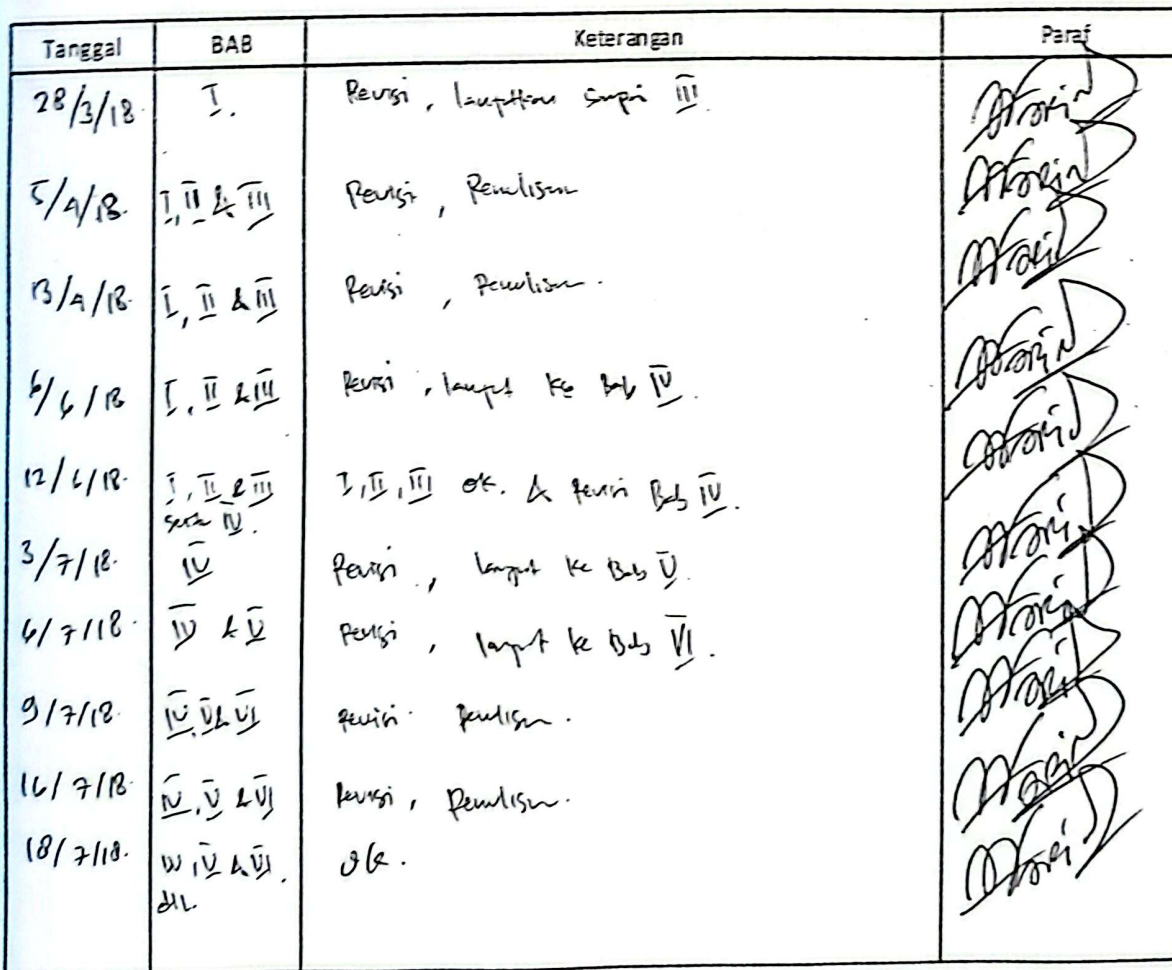 Tanggal BAB Keterangan Paraf
28/3/18. I. Revisi, lanjutkan sampai III.
5/4/18. I, II & III Revisi, Penulisan
13/4/18. I, II & III Revisi, Penulisan.
6/6/18 I, II & III Revisi, lanjut ke Bab IV.
12/6/18. I, II & III I, II, III ok. & revisi Bab IV.
serta IV.
3/7/18. IV Revisi, lanjut ke Bab V.
6/7/18. IV & V Revisi, lanjut ke Bab VI.
9/7/18. IV, V & VI revisi Penulisan.
16/7/18. IV, V & VI Revisi, Penulisan.
18/7/18. IV, V & VI. ok.
dll.